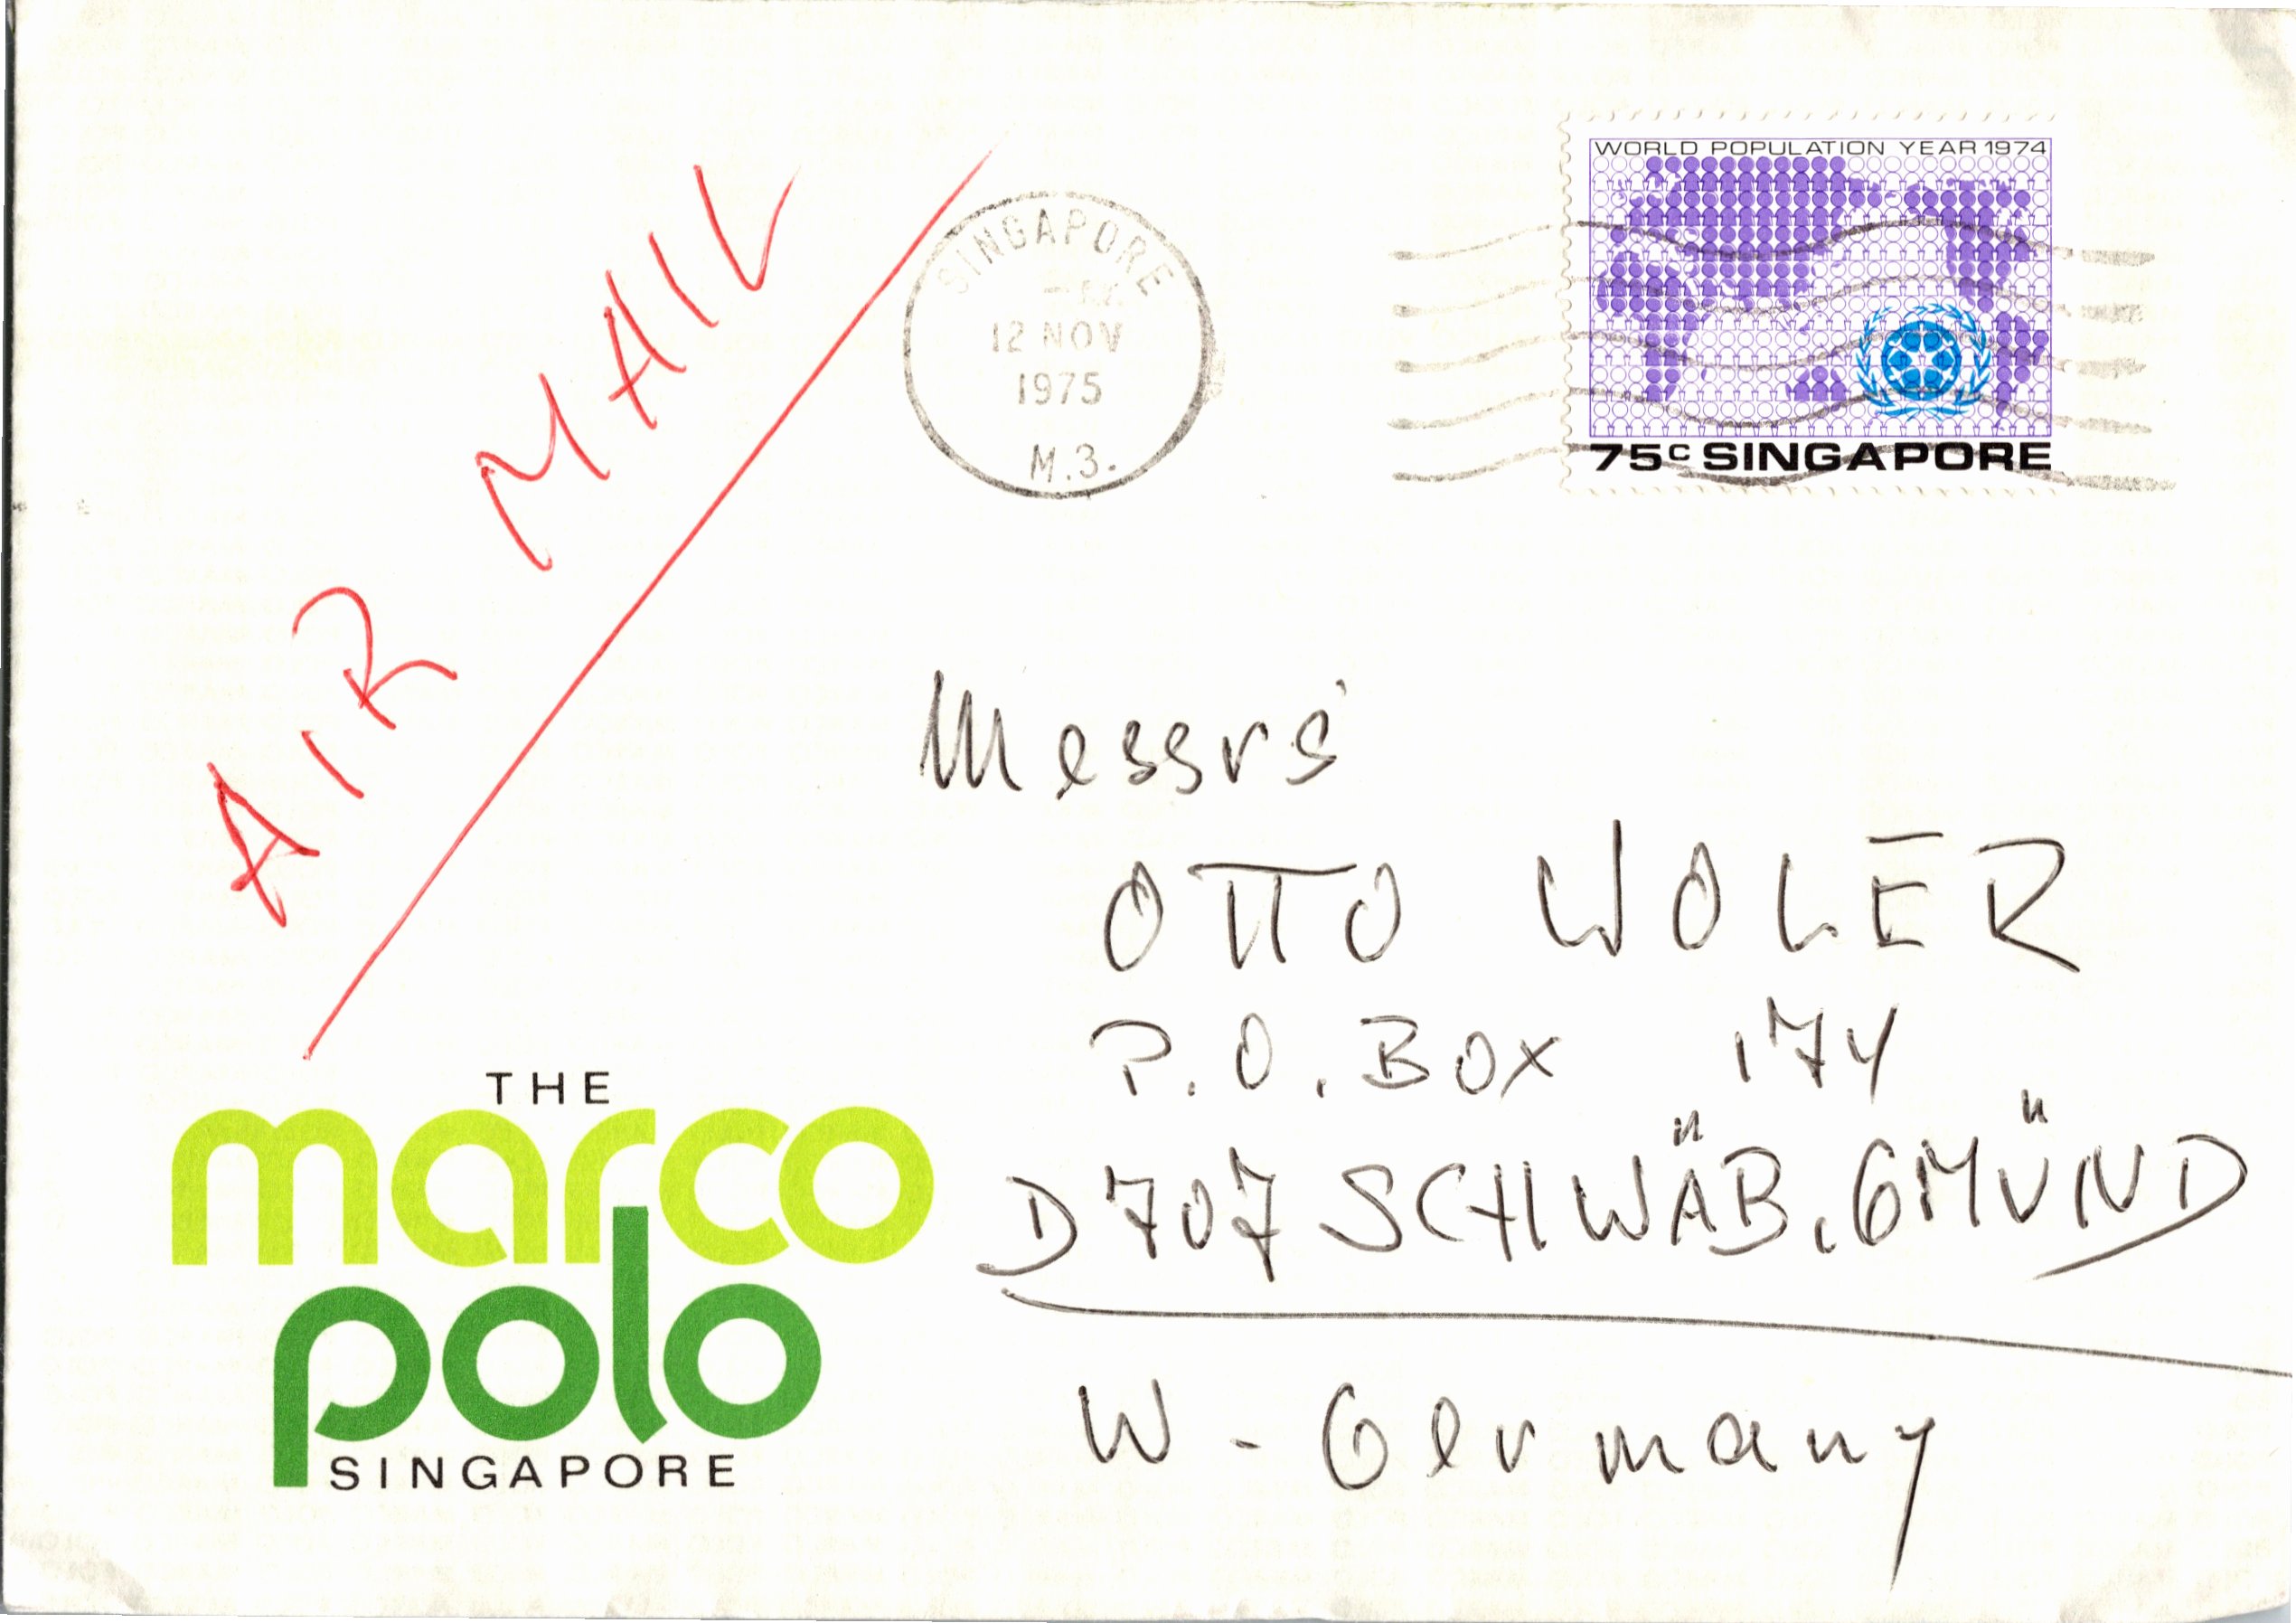 AIR MAIL
SINGAPORE
12 NOV
1975
M.3.
WORLD POPULATION YEAR 1974
75c SINGAPORE
Messrs
OTTO WOLER
P.O. BOX 174
D 707 SCHWÄB. GMÜND
W - Germany
THE
marco
polo
SINGAPORE